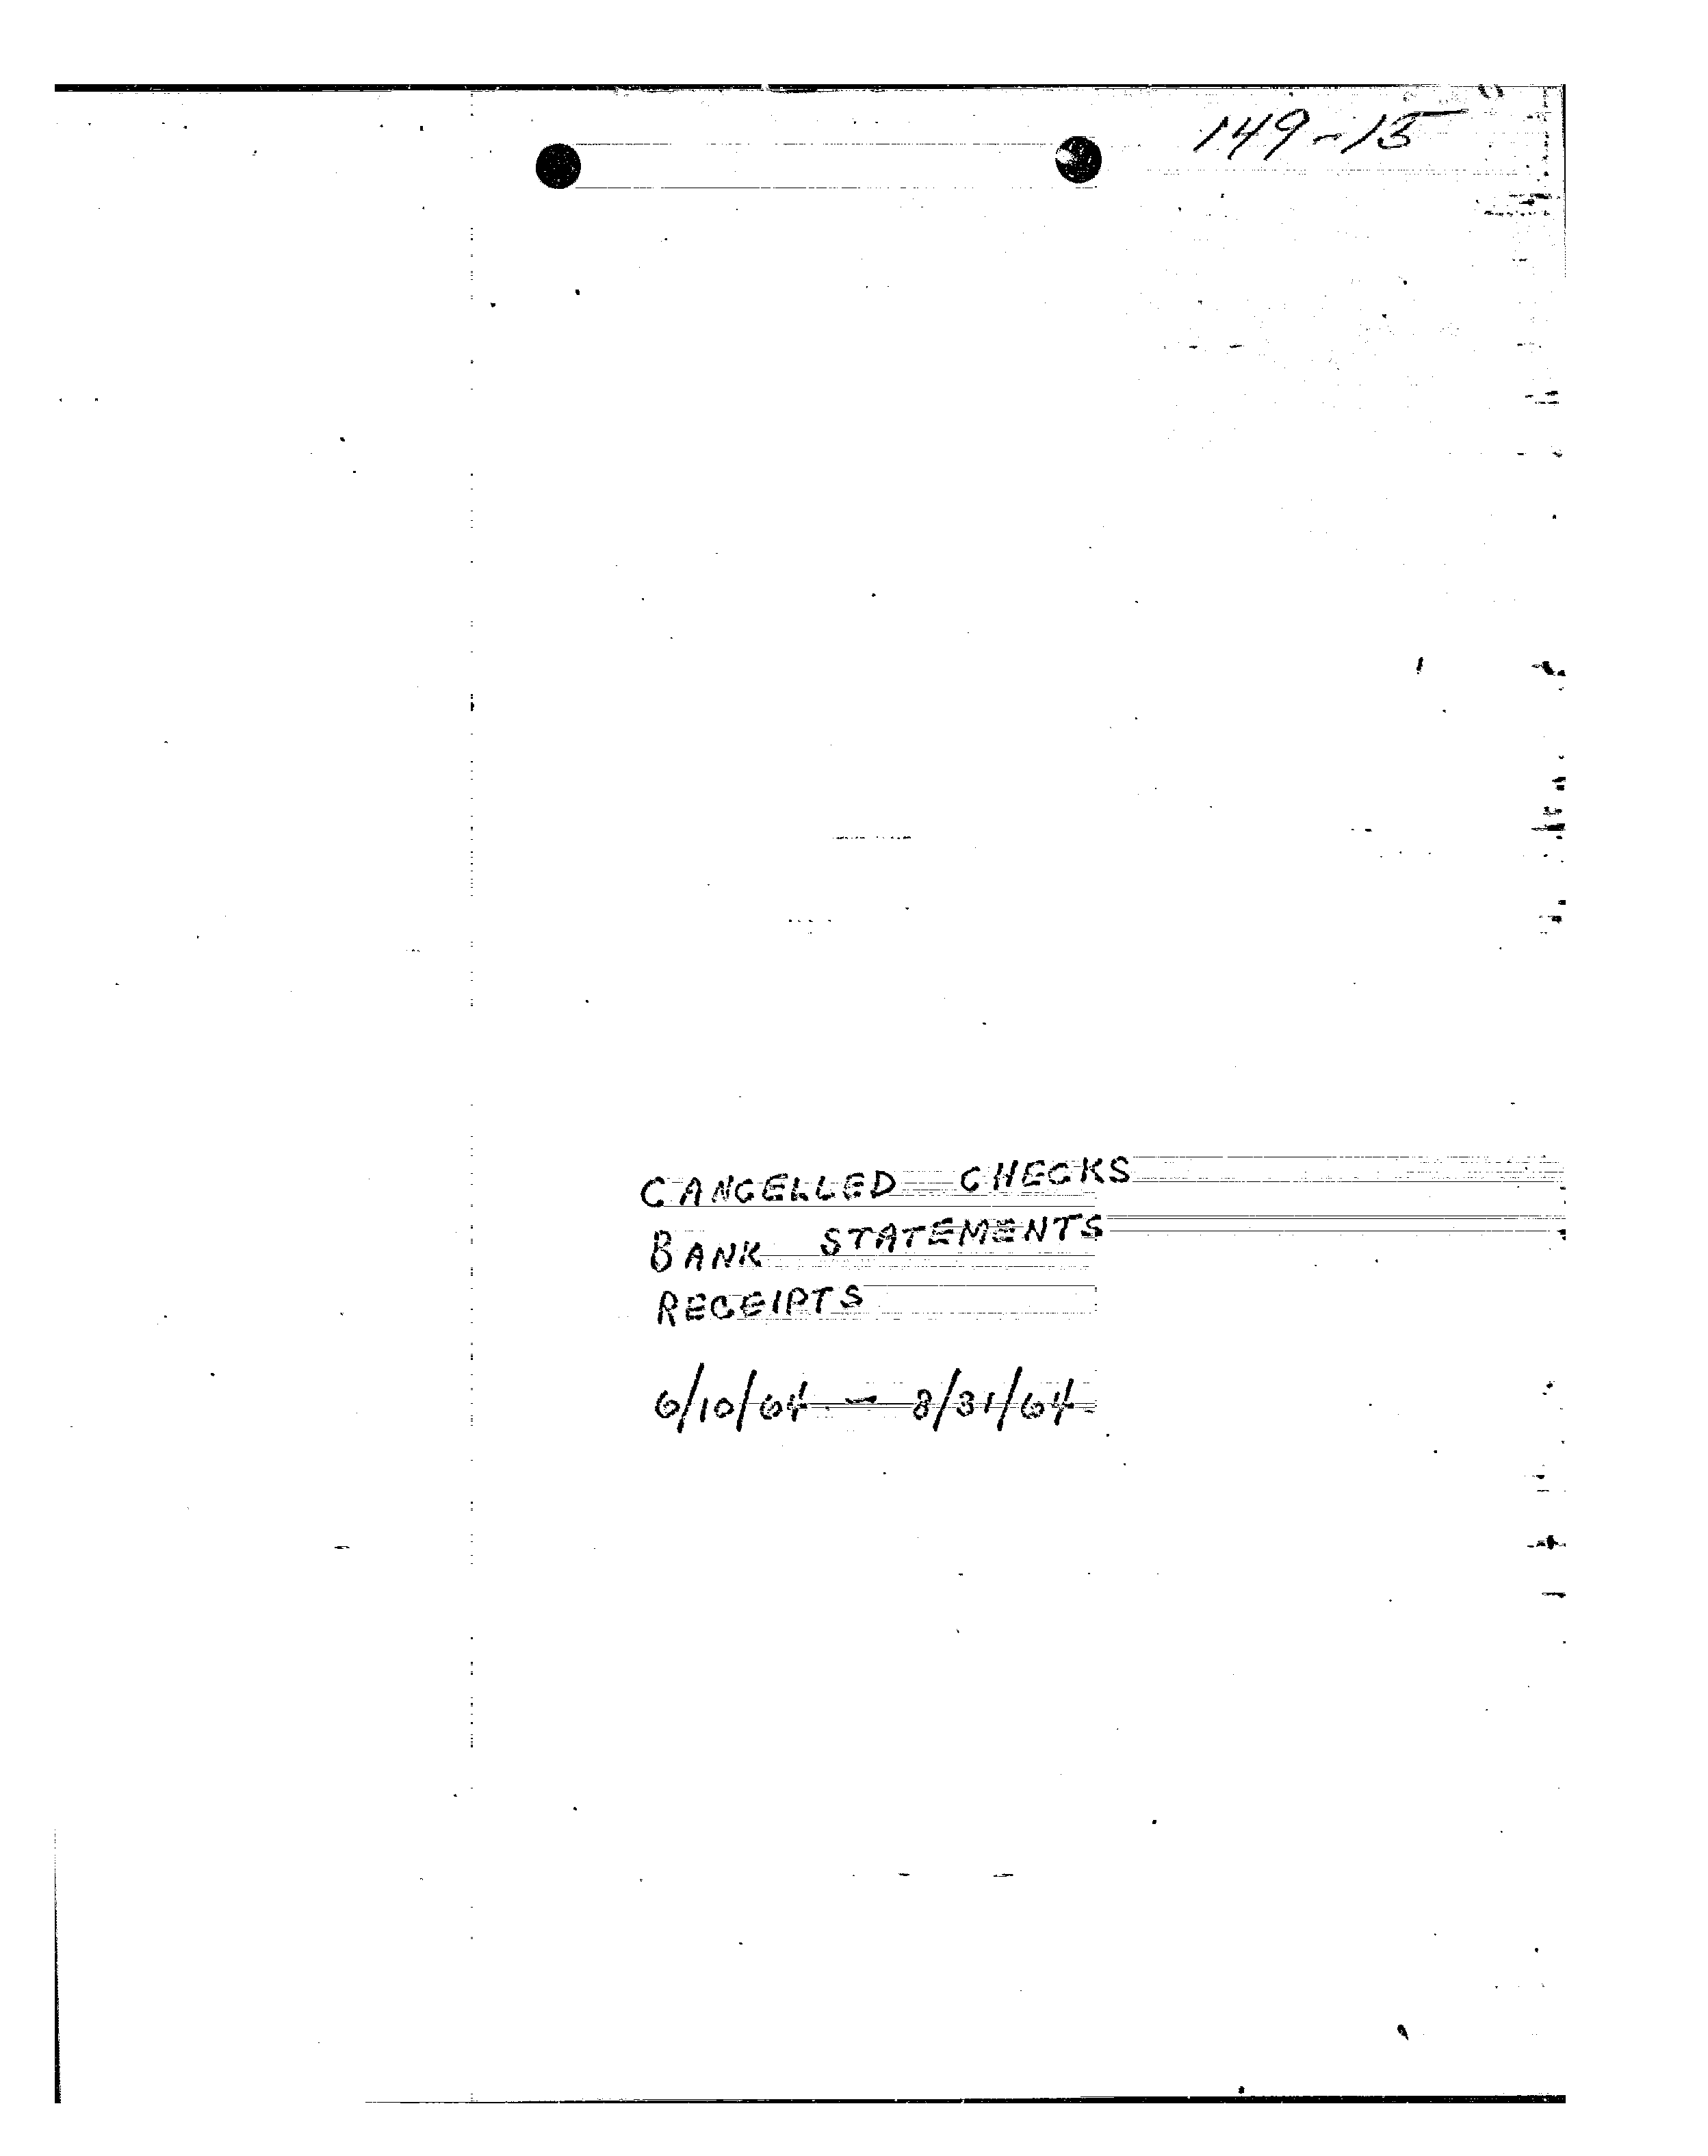 149-15
CANCELLED CHECKS
BANK STATEMENTS
RECEIPTS
6/10/64 - 8/31/64